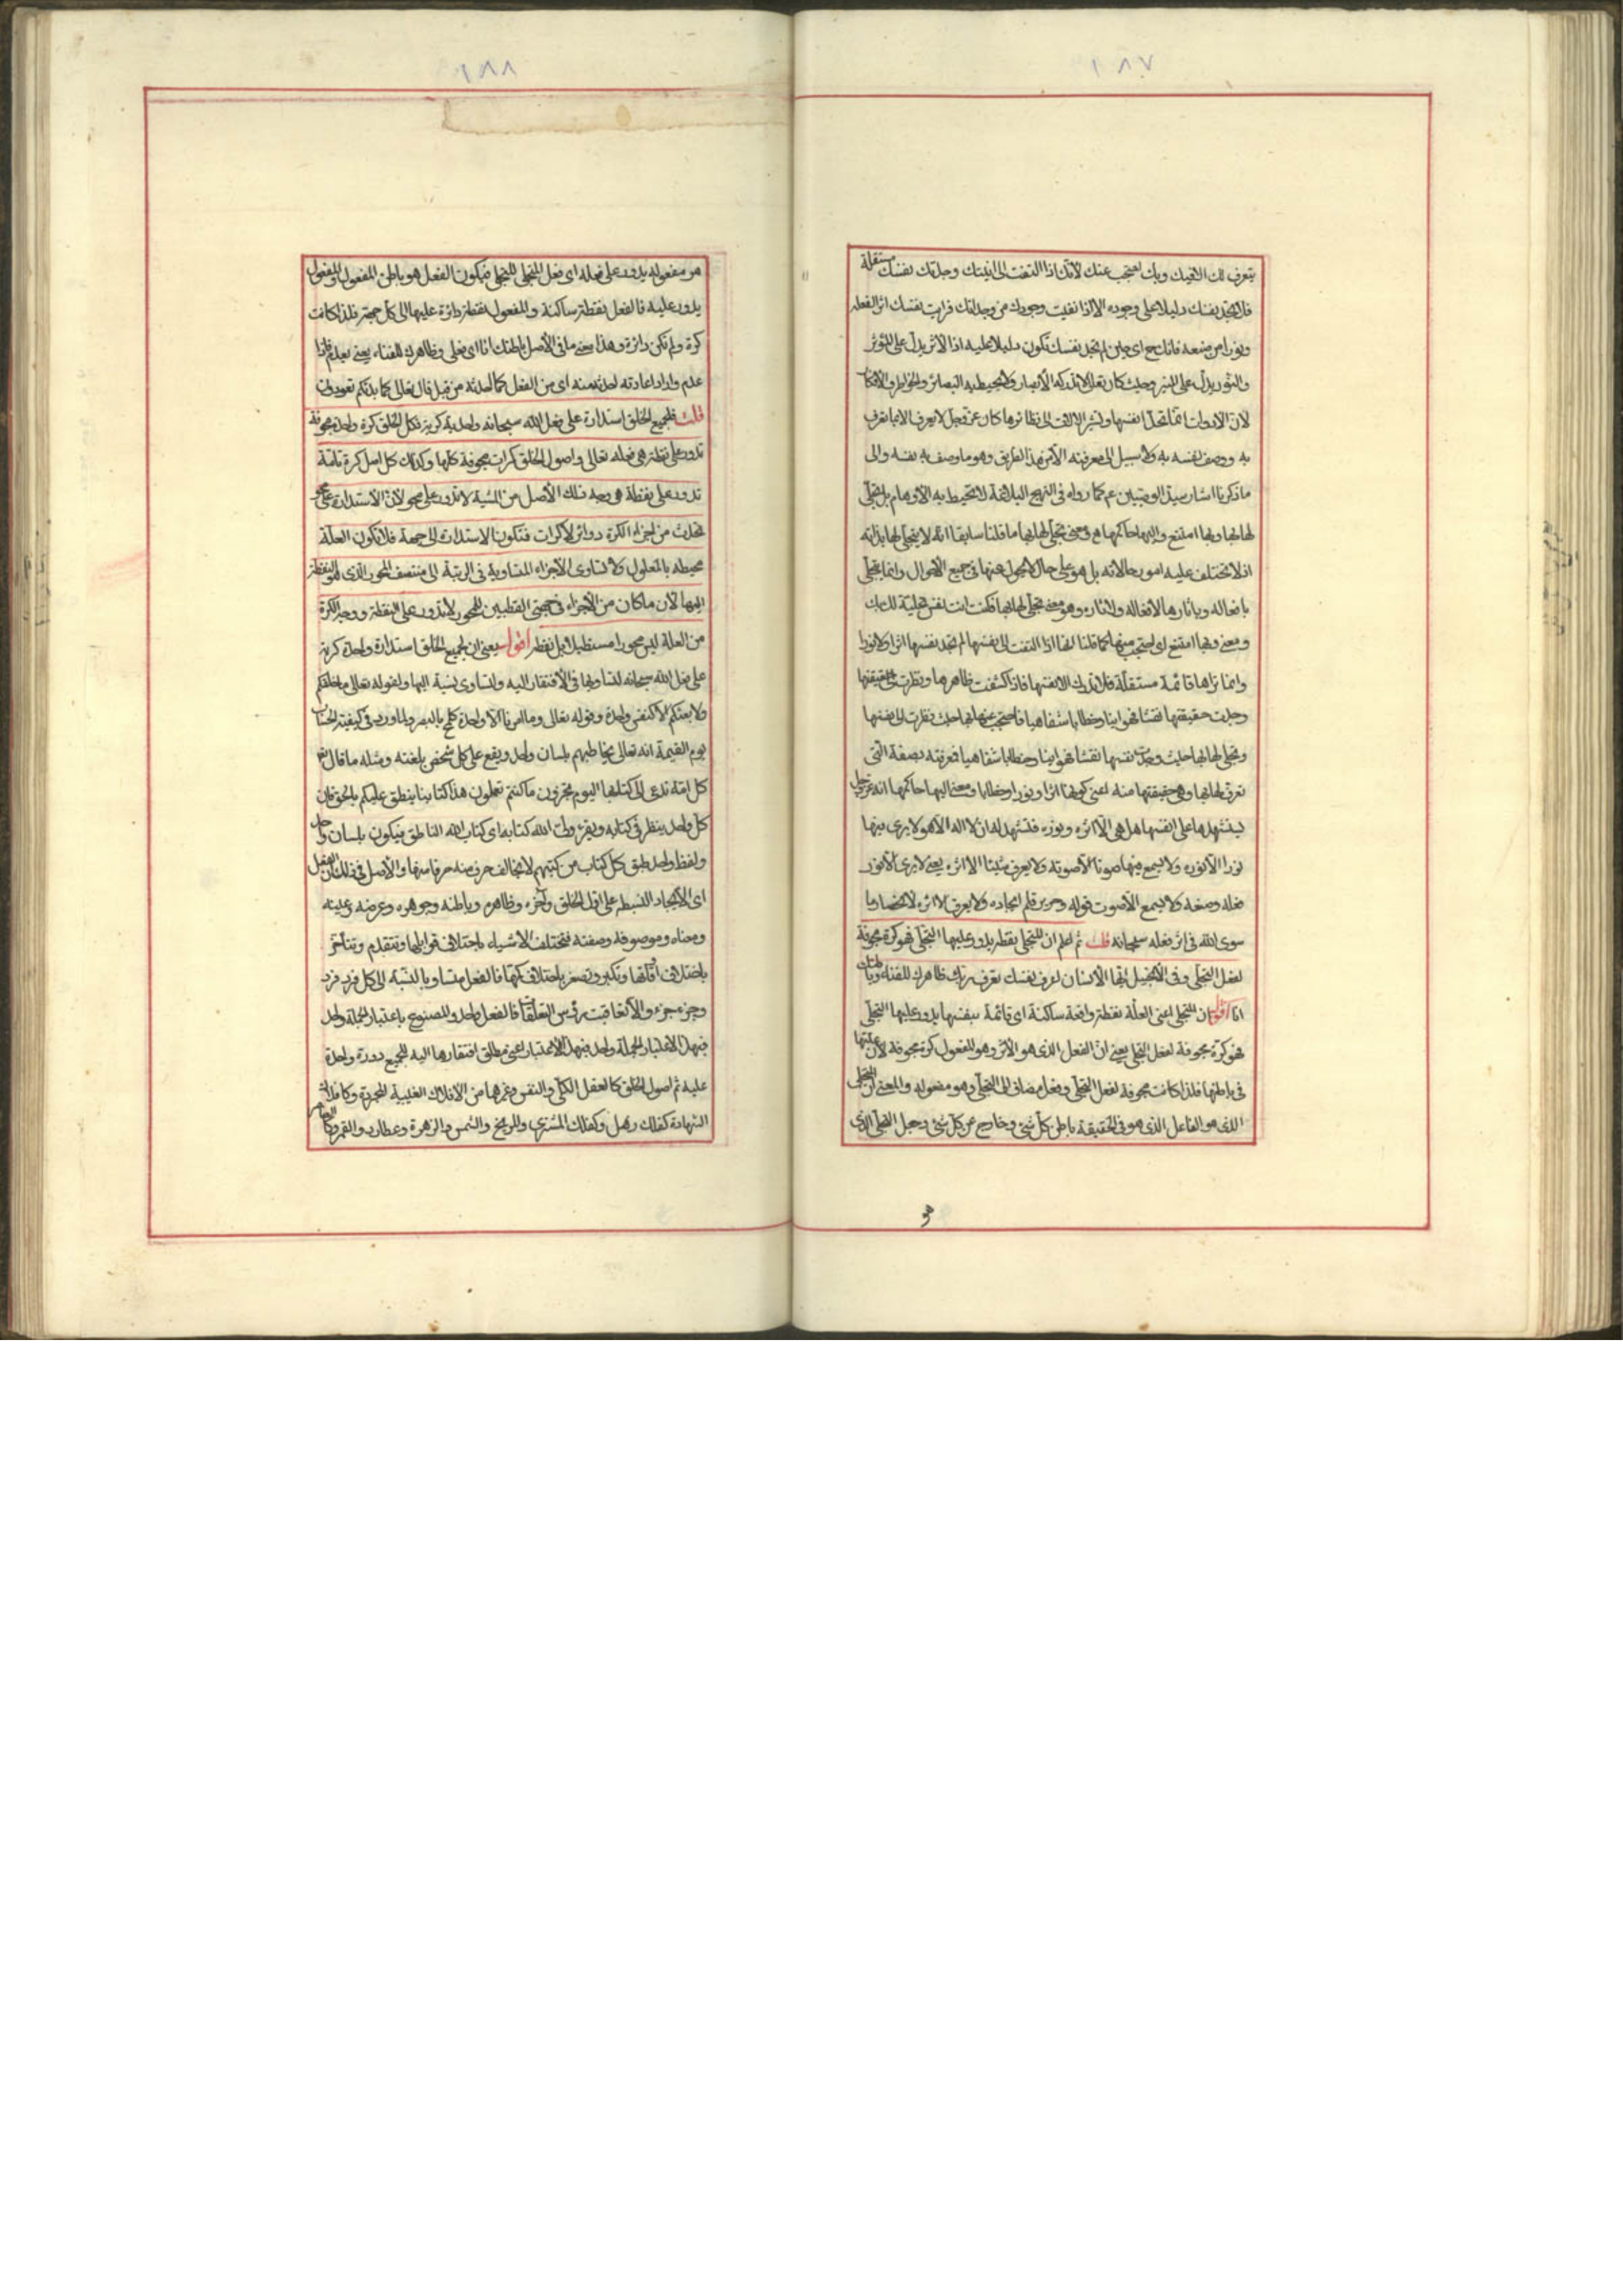 ١٨٧
يتعرف لك اليك وبك احتجب عنك لانك اذا التفت الى انيتك وجدتك نفسك مستقلة
فلا تجد نفسك دليلا على وجوده الا اذا نفيت وجودك من وجدانك فرايت نفسك اثرا لفعله
ونورا من صنعه فانك ح اى حين لم تجد نفسك تكون دليلا عليه اذا الاثر يدل على المؤثر
والنور يدل على المنير وحيث كان تعالى لا تدركه الأبصار ولا تحيط به البصائر والخواطر والافكار
لان الادوات انما تحد انفسها وتشير الالات الى نظائرها كان عز وجل لا يعرف الا بما تعرف
به ووصف نفسه به ولا سبيل الى معرفته الا من هذا الطريق وهو ما وصف به نفسه والى
ما ذكرنا اشار سيد الوصيين عم كما رواه فى النهج البلاغة لا تحيط به الأوهام بل تجلى
لها بها وبها امتنع منها واليها حاكمها مع ومعنى تجلى لها بها ما قلنا سابقا انه لا يتجلى لها بذاته
اذ لا تختلف عليه امور حالاته بل هو على حال لا يحول عنها فى جميع الاحوال وانما يتجلى
بافعاله وباثارها لافعاله ولاثاره وهو معنى تجلى لها بها فكنت انت نفس تجليه لك بك
ومعنى وبها امتنع اى احتجب منها كما قلنا انها اذا التفت الى نفسها لم تجد نفسها اثرا ولا نورا
وانما تراها قائمة مستقلة فلا تدرك الا نفسها فاذا كشفت ظاهرها ونظرت الى حقيقتها
وجدت حقيقتها نقشا فهوانيا وخطابا شفاهيا فاحتجب عنها بها حيث نظرت الى نفسها
وتجلى لها بها حيث وجدت نفسها نقشا فهوانيا وخطابا شفاهيا فعرفته بصفة التى
تعرف لها بها وهى حقيقتها منه اعنى كونها اثرا ونورا وخطابا ومعنى اليها حاكمها انه عز وجل
ليشتهدها على انفسها هل هى الا اثره ونوره فتشهد له ان لا اله الا هو لا يرى فيها
نورا الا نوره ولا يسمع فيها صوتا الا صوته ولا يعرف شيئا الا اثره يعنى لا يرى الا نور
فعله وصنعه ولا يسمع الا صوت قوله وصرير قلم ايجاده ولا يعرف الا اثره
سوى الله فى اثر فعله سبحانه قلت ثم اعلم ان المتجلى نقطة يدور عليها التجلى فهو كرة مجوفة
لفعل المتجلى وفى الانجيل ايها الانسان اعرف نفسك تعرف ربك ظاهرك للفناء وباطنك
انا اقول ان المتجلى اعنى العلة نقطة واقعة ساكنة اى قائمة بنفسها يدور عليها التجلى
فهو كرة مجوفة لفعل المتجلى يعنى ان الفعل الذى هو الاثر وهو المفعول كرة مجوفة لان علتها
فى باطنها فلذا كانت مجوفة لفعل المتجلى وفعل مضاف الى المتجلى وهو مفعوله والمعنى ان المتجلى
الذى هو الفاعل الذى هو فى الحقيقة باطن كل شئ وخارج عن كل شئ وجعل التجلى الذى
١٨٨
هو مفعوله يدور على فعله اى فعل المتجلى للتجلى فيكون الفعل هو باطن المفعول والمفعول
يدور عليه فالفعل نقطة ساكنة والمفعول نقطة دائرة عليها الى كل جهة فلذا كانت
كرة ولم تكن دائرة وهذا معنى ما فى الاصل باطنك انا اى فعلى وظاهرك للفناء يعنى يعدم فاذا
عدم واراد اعادته احدثه منه اى من الفعل كما احدثه من قبل قال تعالى كما بدئكم تعودون
قلت فلجميع الخلق استدارة على فعل الله سبحانه واحدة كرية فكل الخلق كرة واحدة مجوفة
تدور على نقطة هى فعله تعالى واصول الخلق كرات مجوفة كلها وكذلك كل اصل كرة تامة
تدور على نقطة هى وجه ذلك الأصل من المشية لا تدور على محور لأن الاستدارة على محور
تحدث من اجزاء الكرة دوائر لا كرات فتكون الاستدارة الى جهة فلا تكون العلة
محيطة بالمعلول ولا تساوى الأجزاء المتساوية فى الرتبة الى منتصف المحور الذى هو النقطة
اليها لان ما كان من الأجزاء فى جهتى القطبين للمحور لا تدور على النقطة ووجه الكرة
من العلة ليس محورا مستطيلا بل نقطة اقول يعنى ان لجميع الخلق استدارة واحدة كرية
على فعل الله سبحانه لتساويها فى الافتقار اليه ولتساوى نسبة اليها ولقوله تعالى ما خلقكم
ولا بعثكم الا كنفس واحدة وقوله تعالى وما امرنا الا واحدة كلمح بالبصر ولما ورد فى كيفية الحساب
يوم القيمة انه تعالى يخاطبهم بلسان واحد ويقع على كل شخص بلغته ومثله ما قال تعالى
كل امة تدعى الى كتابها اليوم تجزون ما كنتم تعملون هذا كتابنا ينطق عليكم بالحق فان
كل واحد ينظر فى كتابه ويقرء وان الله كتابه اى كتاب الله الناطق فيكون بلسان واحد
ولفظ واحد طبق كل كتاب من كتبهم لا يخالف حرف منه حرفا منها والأصل فى ذلك ان الفعل
اى الايجاد انبسط على اول الخلق وآخره وظاهره وباطنه وجوهره وعرضه وعينه
ومعناه وموصوفه وصفته فتختلف الاشياء باختلاف قوابلها وتتقدم وتتأخر
باختلاف اوقاتها وتكبر وتصغر باختلاف كمها فالفعل متساو بالنسبة الى كل فرد فرد
وجزء جزء والا تعاقبت رؤس التعلقات فالفعل واحد والمصنوع باعتبار الجملة واحد
فبهذا الاعتبار الجملة واحد فبهذا الاعتبار اعنى مطلق افتقارها اليه للجميع دورة واحدة
عليه ثم اصول الخلق كالعقل الكلى والنفس وغيرها من الافلاك الغيبية المجردة وكافلاك
الشهادة كفلك زحل وكفلك المشترى والمريخ والشمس والزهرة وعطارد والقمر